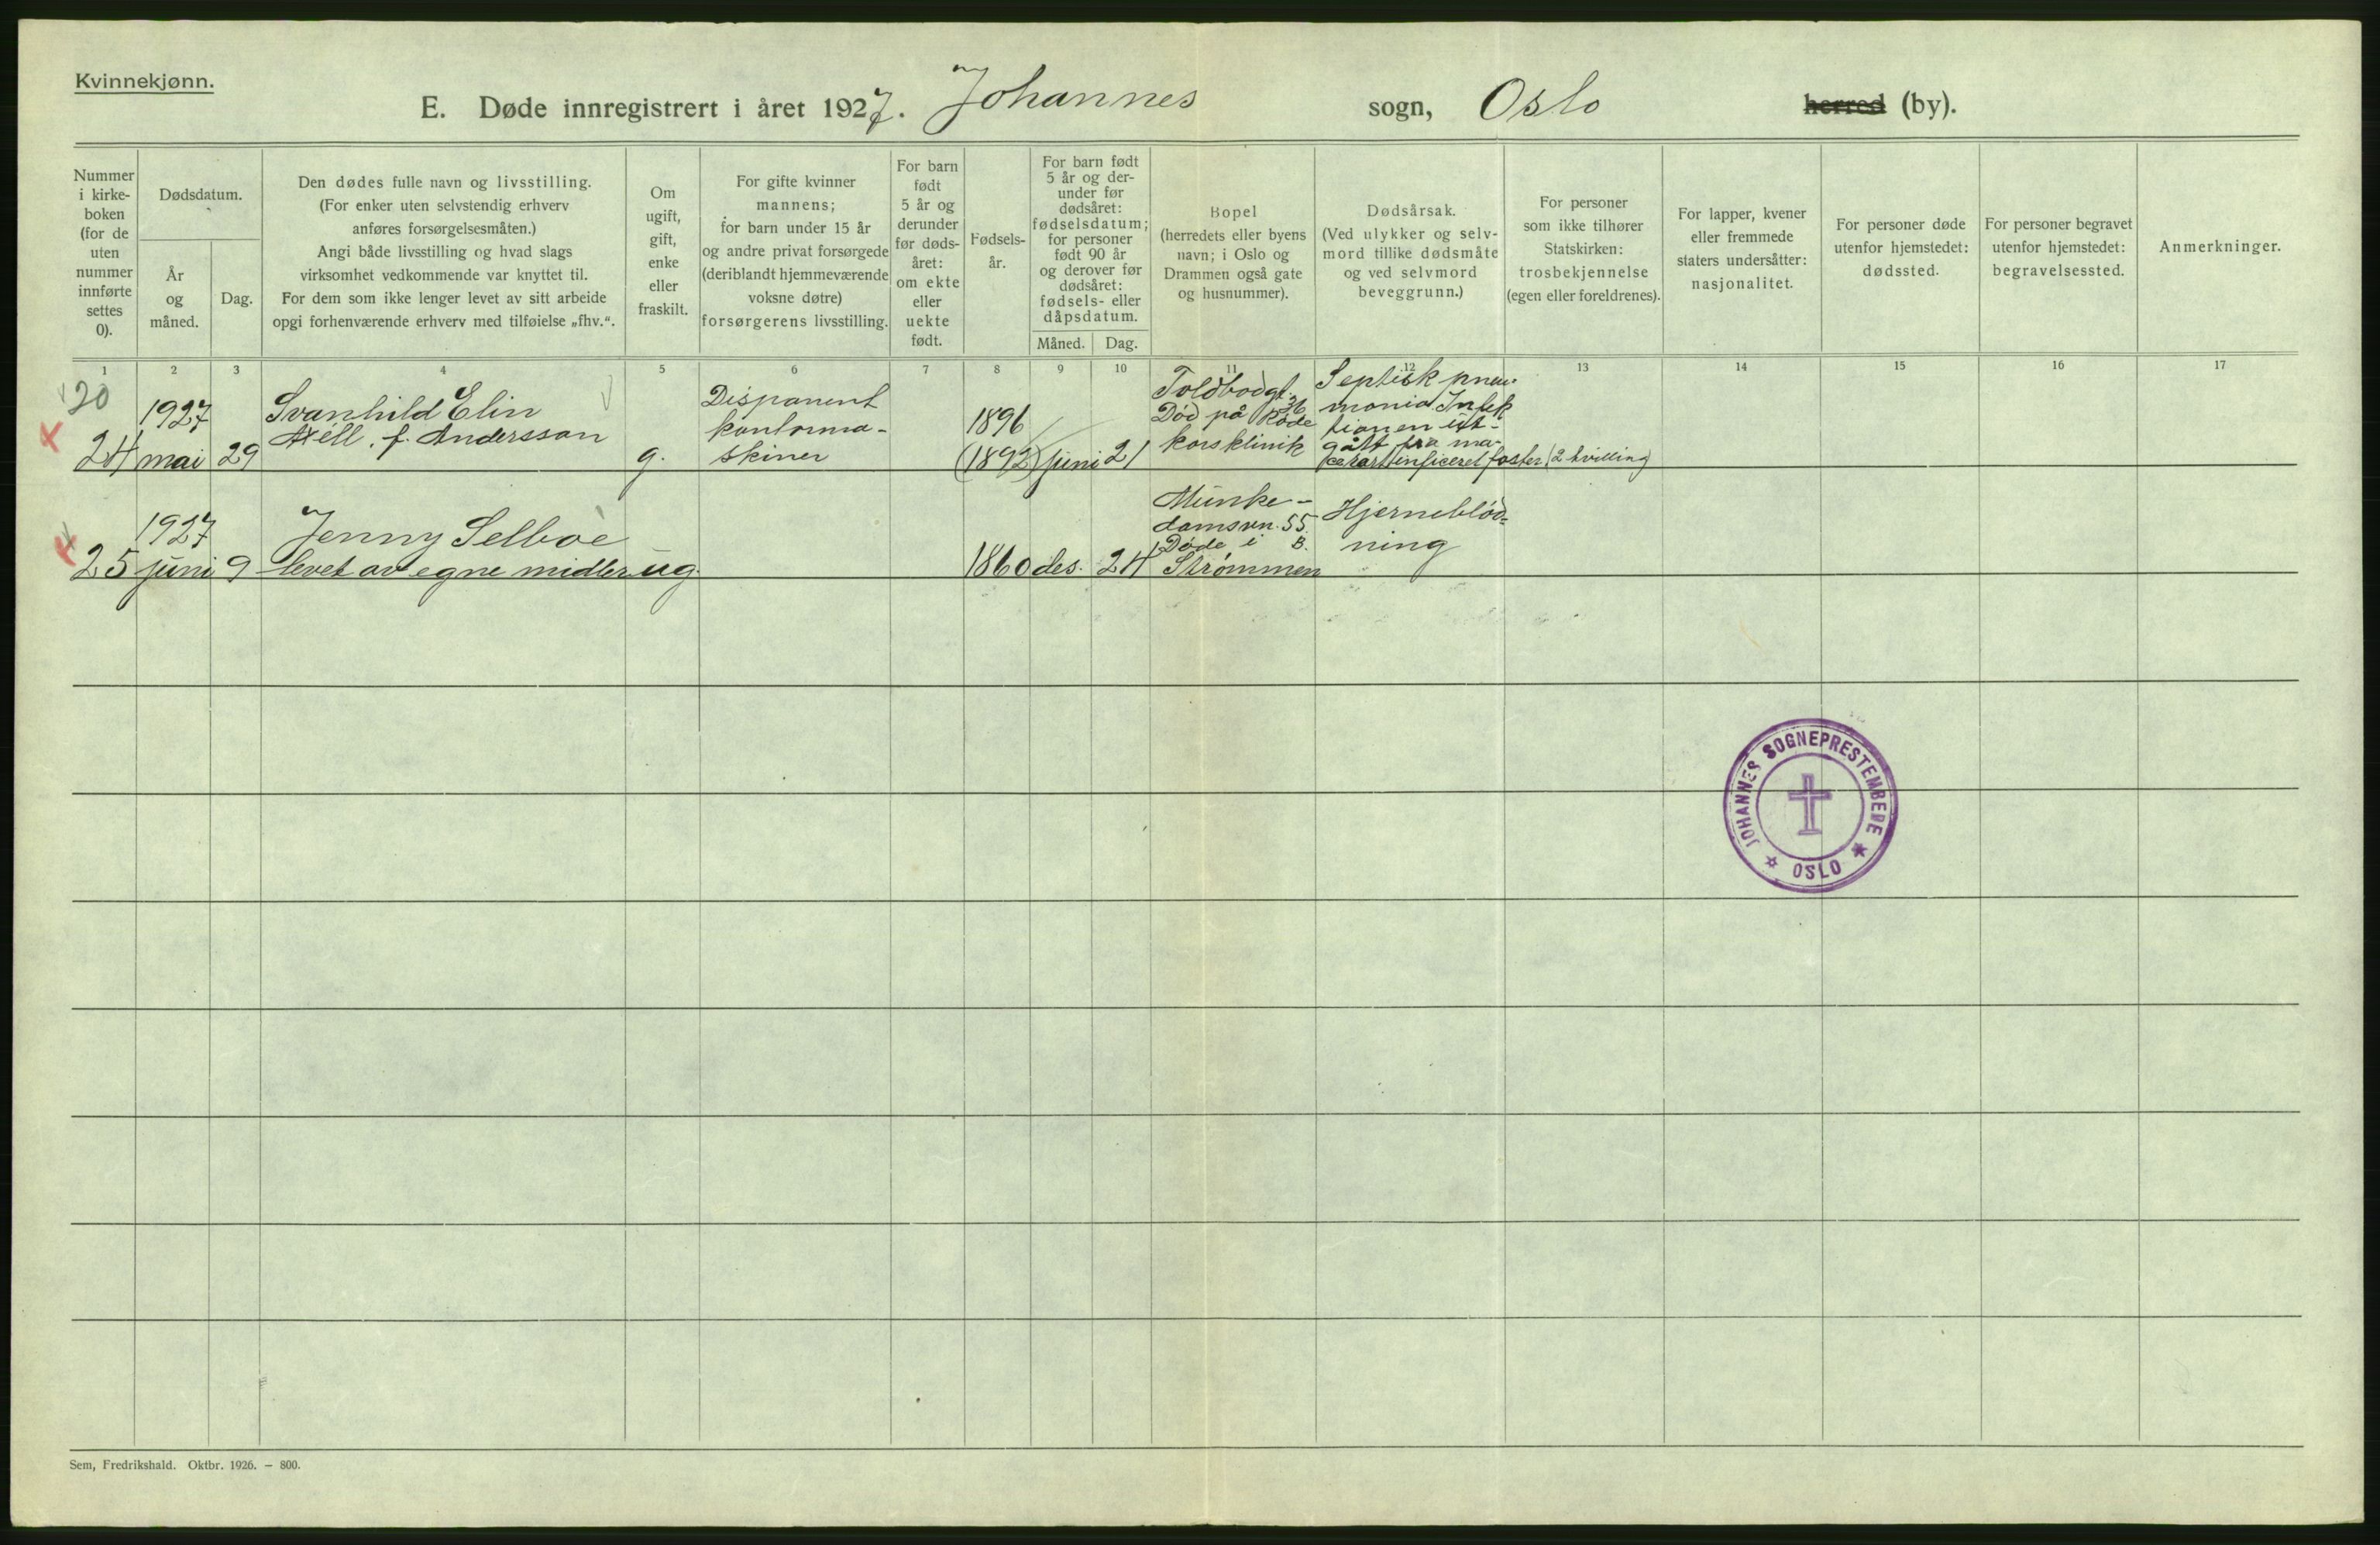 Kvinnekjønn.
E. Døde innregistrert i året 1927. Johannes sogn, Oslo herred (by).
Nummer
i kirke-
boken
(for de
uten
nummer
innførte
settes
0).
Dødsdatum.
År
og
måned.
Dag.
Den dødes fulle navn og livsstilling.
(For enker uten selvstendig erhverv
anføres forsørgelsesmåten.)
Angi både livsstilling og hvad slags
virksomhet vedkommende var knyttet til.
For dem som ikke lenger levet av sitt arbeide
opgi forhenværende erhverv med tilføielse „fhv.“.
Om
ugift,
gift,
enke
eller
fraskilt.
For gifte kvinner
mannens;
for barn under 15 år
og andre privat forsørgede
(deriblandt hjemmeværende
voksne døtre)
forsørgerens livsstilling.
For barn
født
5 år og
derunder
før døds-
året:
om ekte
eller
uekte
født.
Fødsels-
år.
For barn født
5 år og der-
under før
dødsåret:
fødselsdatum;
for personer
født 90 år
og derover før
dødsåret:
fødsels- eller
dåpsdatum.
Måned.
Dag.
Bopel
(herredets eller byens
navn; i Oslo og
Drammen også gate
og husnummer).
Dødsårsak.
(Ved ulykker og selv-
mord tillike dødsmåte
og ved selvmord
beveggrunn.)
For personer
som ikke tilhører
Statskirken:
trosbekjennelse
(egen eller foreldrenes).
For lapper, kvener
eller fremmede
staters undersåtter:
nasjonalitet.
For personer døde
utenfor hjemstedet:
dødssted.
For personer begravet
utenfor hjemstedet:
begravelsessted.
Anmerkninger.
1 2 3 4 5 6 7 8 9 10 11 12 13 14 15 16 17
20
24
1927
mai
29
Svanhild Elin
Axéll, f. Andersson
g.
Disponent
kontorma-
skiner
1896
(1892)
juni
21
Toldbodgt.
36
Død på Røde
kors klinik
Septisk pneu-
monia Infek
tionen ut-
gått fra ma-
cerart inficeret foster (2 tvilling)
25
1927
juni
9
Jenny Selboe
levet av egne midler
ug.
1860
des.
24
Munke-
damsvn. 55
B.
Døde i
Strømmen
Hjerneblød-
ning
JOHANNES SOGNEPRESTEMBEDE
OSLO
Sem, Fredrikshald. Oktbr. 1926. – 800.